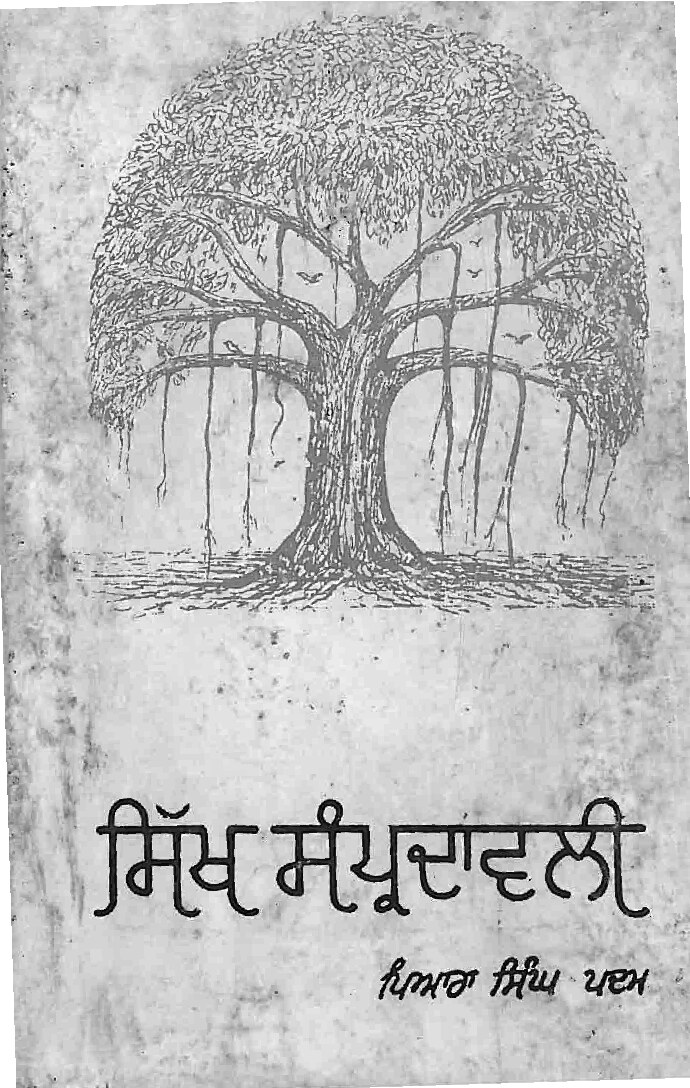 ਸਿੱਖ ਸੰਪ੍ਰਦਾਵਲੀ
ਪਿਆਰਾ ਸਿੰਘ ਪਦਮ